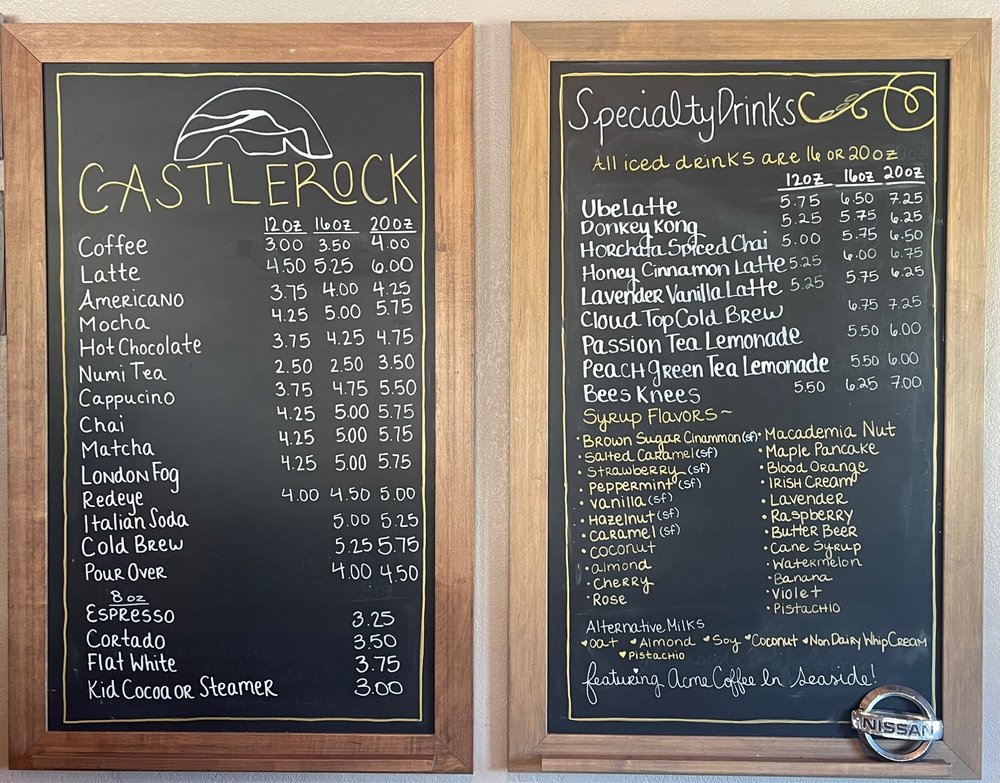 CASTLEROCK
12oz 16oz 20oz
Coffee 3.00 3.50 4.00
Latte 4.50 5.25 6.00
Americano 3.75 4.00 4.25
Mocha 4.25 5.00 5.75
Hot Chocolate 3.75 4.25 4.75
Numi Tea 2.50 2.50 3.50
Cappucino 3.75 4.75 5.50
Chai 4.25 5.00 5.75
Matcha 4.25 5.00 5.75
London Fog 4.25 5.00 5.75
Redeye 4.00 4.50 5.00
Italian Soda 5.00 5.25
Cold Brew 5.25 5.75
Pour Over 4.00 4.50
8oz
Espresso 3.25
Cortado 3.50
Flat White 3.75
Kid Cocoa or Steamer 3.00
Specialty Drinks
All iced drinks are 16 or 20oz
12oz 16oz 20oz
Ube Latte 5.75 6.50 7.25
Donkey Kong 5.25 5.75 6.25
Horchata Spiced Chai 5.00 5.75 6.50
Honey Cinnamon Latte 5.25 6.00 6.75
Lavender Vanilla Latte 5.25 5.75 6.25
Cloud Top Cold Brew 6.75 7.25
Passion Tea Lemonade 5.50 6.00
Peach Green Tea Lemonade 5.50 6.00
Bees Knees 5.50 6.25 7.00
Syrup Flavors~
• Brown Sugar Cinammon (sf)
• Salted Caramel (sf)
• Strawberry (sf)
• Peppermint (sf)
• Vanilla (sf)
• Hazelnut (sf)
• Caramel (sf)
• Coconut
• almond
• Cherry
• Rose
• Macademia Nut
• Maple Pancake
• Blood Orange
• Irish Cream
• Lavender
• Raspberry
• Butter Beer
• Cane Syrup
• Watermelon
• Banana
• Violet
• Pistachio
Alternative Milks
♥oat ♥Almond ♥Soy ♥Coconut ♥Non Dairy Whip Cream
♥Pistachio
featuring Acme Coffee In Seaside!
NISSAN